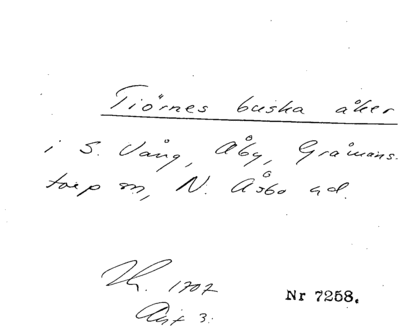 Tiörnes buska åker
i S. Vång, Åby, Gråmans-
torp sn, N. Åsbo hd.
Lh. 1707
Akt 3.
Nr 7258.